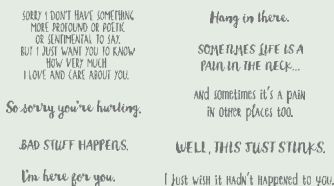 SORRY I DON'T HAVE SOMETHING
MORE PROFOUND OR POETIC
OR SENTIMENTAL TO SAY.
BUT I JUST WANT YOU TO KNOW
HOW VERY MUCH
I LOVE AND CARE ABOUT YOU.
So sorry you're hurting.
BAD STUFF HAPPENS.
I'm here for you.
Hang in there.
SOMETIMES LIFE IS A
PAIN IN THE NECK...
AND SOMETIMES IT'S A PAIN
IN OTHER PLACES TOO.
WELL, THIS JUST STINKS.
I JUST WISH IT HADN'T HAPPENED TO YOU.